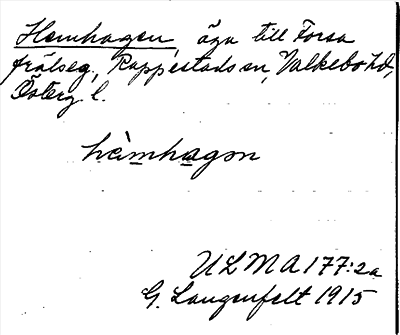 Hemhagen, äga till Forsa
frälseg., Rappestads sn, Valkebo hd,
Österg. l.
hèmhagən
ULMA 177:2a
G. Langenfelt 1915